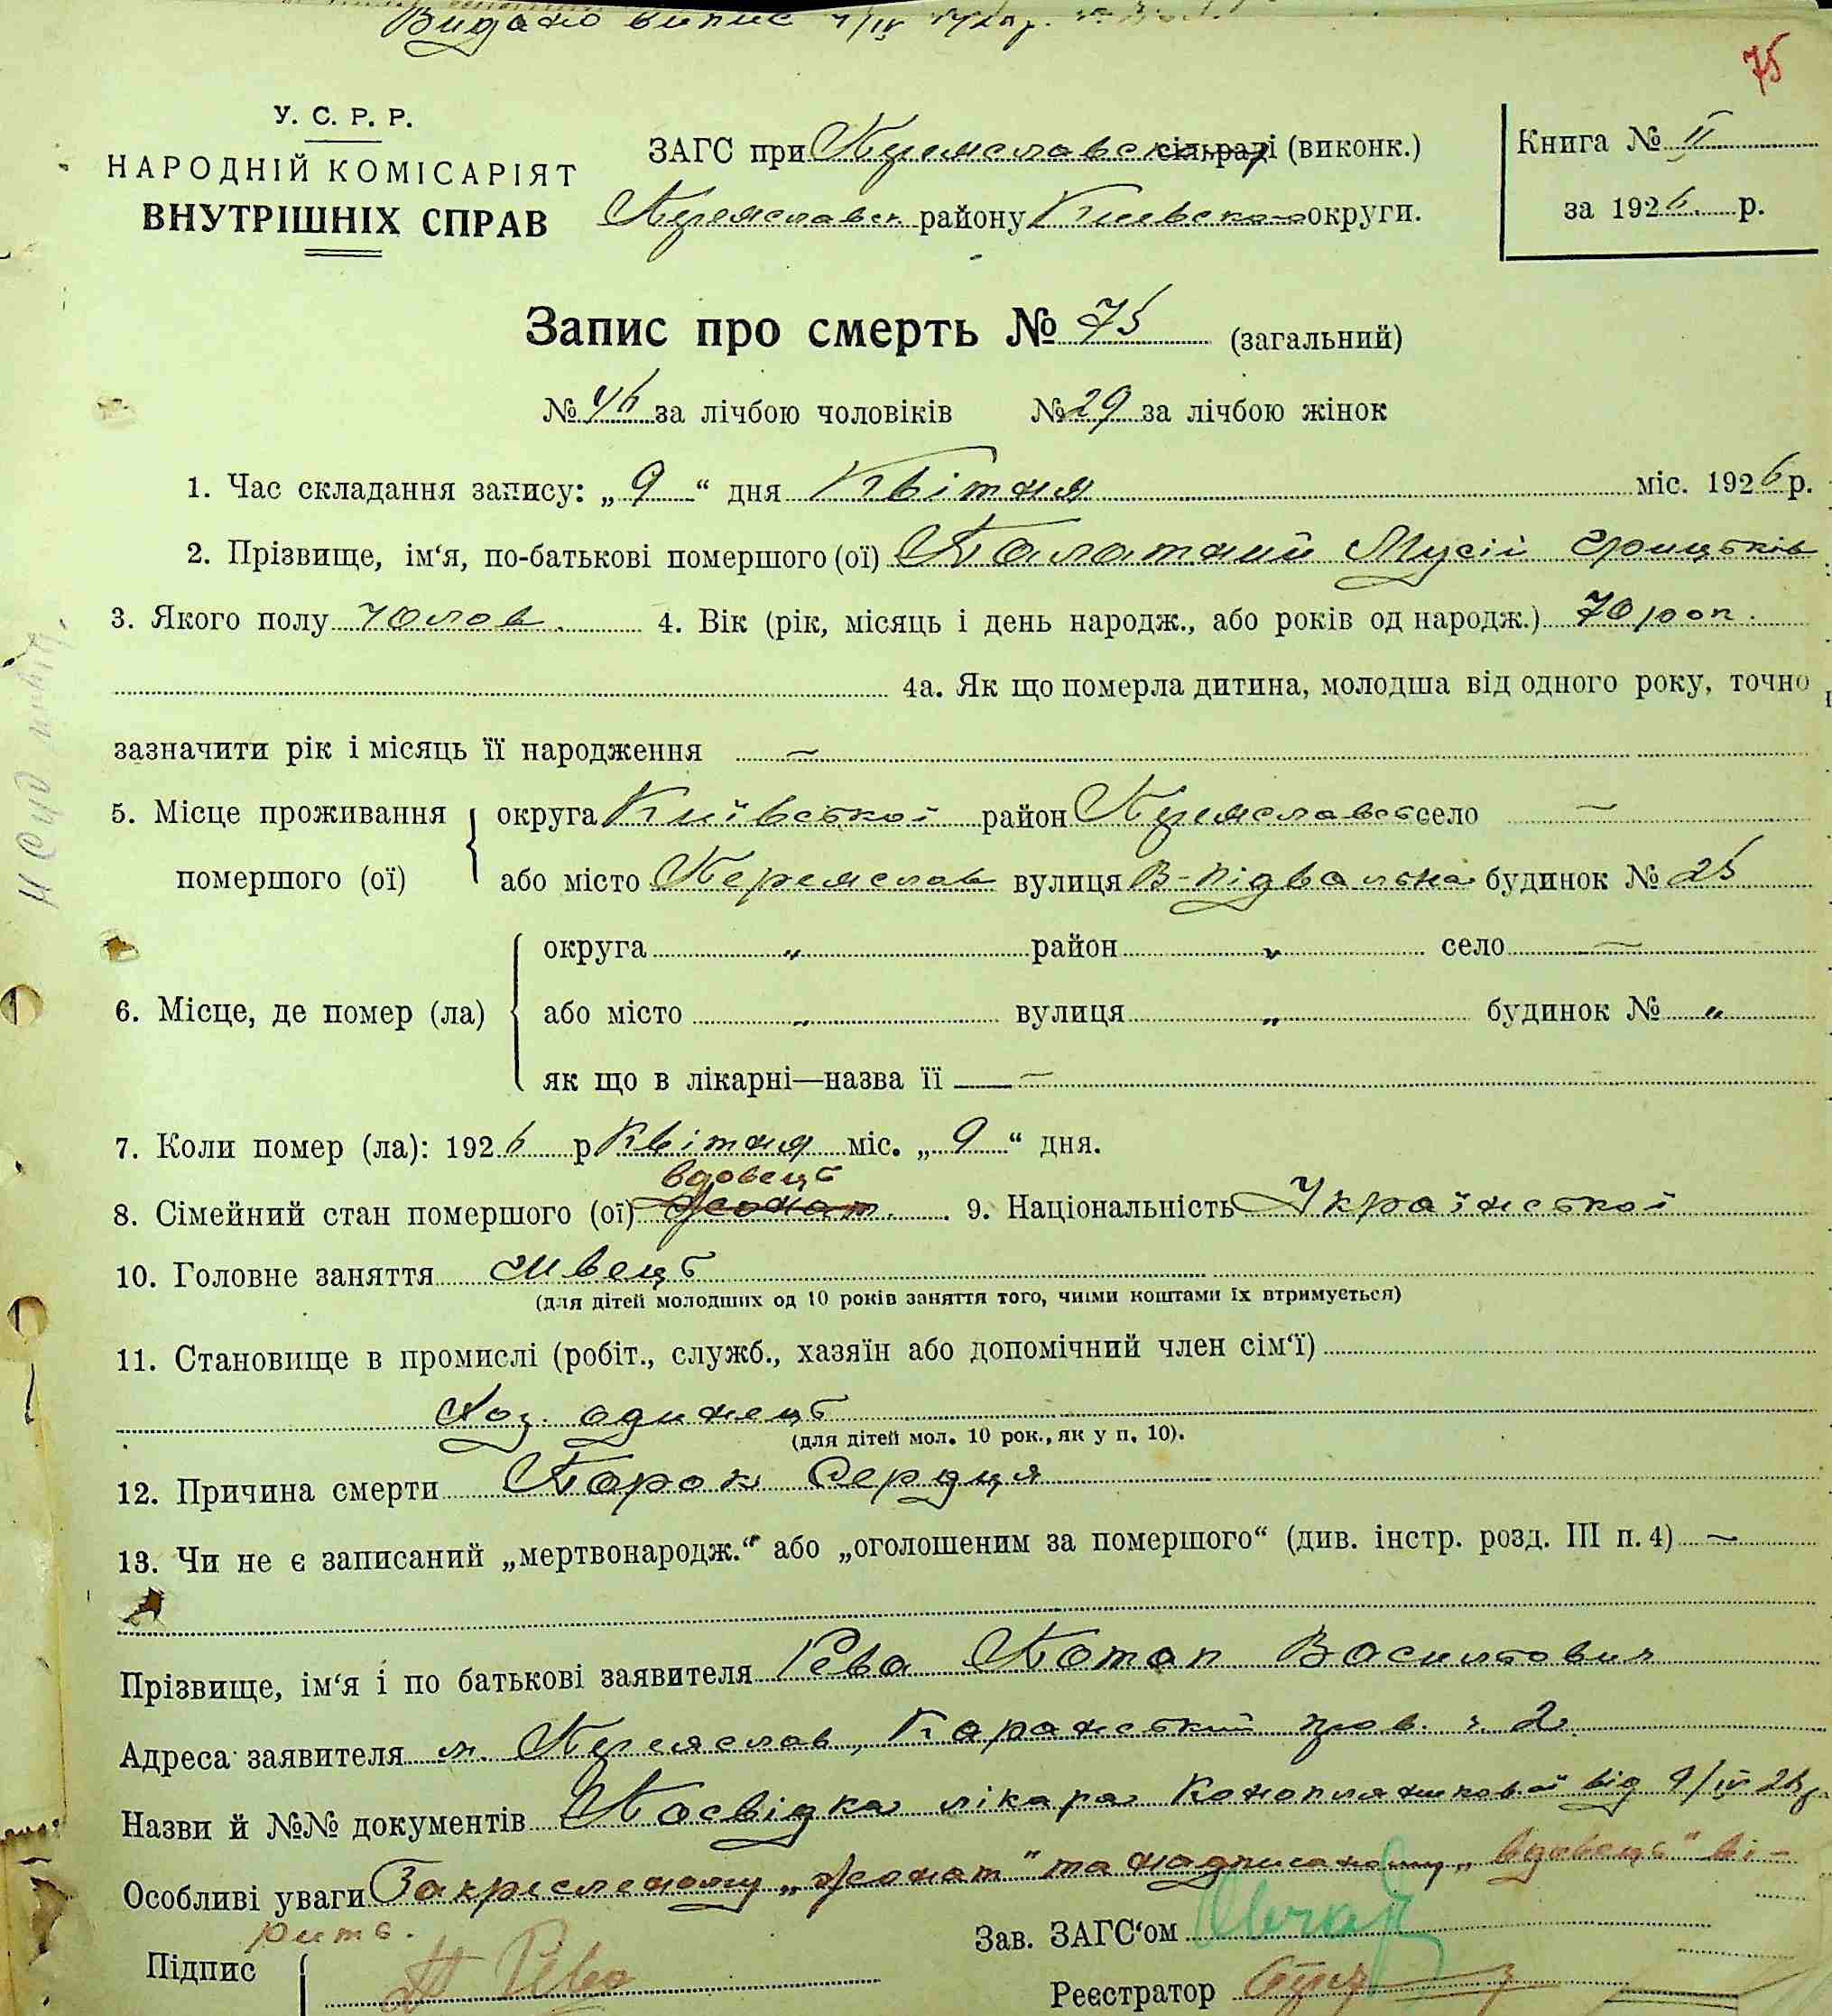 Видано випис
75
У. С. Р. Р.
НАРОДНІЙ КОМІСАРІЯТ
ВНУТРІШНІХ СПРАВ
ЗАГС при Переяславськ сільраді (виконк.)
Переяславськ району Київської округи.
Книга № II
за 1926 р.
Запис про смерть № 75 (загальний)
№ 46 за лічбою чоловіків № 29 за лічбою жінок
1. Час складання запису: „ 9 “ дня Квітня міс. 1926 р.
2. Прізвище, ім‘я, по-батькові помершого (ої) Палатний Мусій Грицьків
3. Якого полу чолов. 4. Вік (рік, місяць і день народж., або років од народж.) 70 рок.
4а. Як що померла дитина, молодша від одного року, точно
зазначити рік і місяць її народження —
5. Місце проживання помершого (ої) округа Київської район Переяславськ село —
або місто Переяслав вулиця В-Підвальна будинок № 25
6. Місце, де помер (ла) округа „ район „ село —
або місто „ вулиця „ будинок № „
як що в лікарні—назва її —
7. Коли помер (ла): 1926 р Квітня міс. „ 9 “ дня.
вдовець
8. Сімейний стан помершого (ої) жонат. 9. Національність Української
10. Головне заняття швець
(для дітей молодших од 10 років заняття того, чиїми коштами їх втримується)
11. Становище в промислі (робіт., служб., хазяїн або допомічний член сім‘ї)
Хоз. одинець
(для дітей мол. 10 рок., як у п. 10).
12. Причина смерти Порок Серця
13. Чи не є записаний „мертвонародж.“ або „оголошеним за помершого“ (див. інстр. розд. III п. 4) —
Прізвище, ім‘я і по батькові заявителя Рева Потап Васильович
Адреса заявителя м. Переяслав, Каранський пров. ч 2
Назви й №№ документів Посвідка лікаря Коноплянникової від 9/IV 26р.
Особливі уваги Закресленому „жонат“ та надписаному „вдовець“ ві-
рить.
Зав. ЗАГС‘ом
Підпис П Рева
Реєстратор